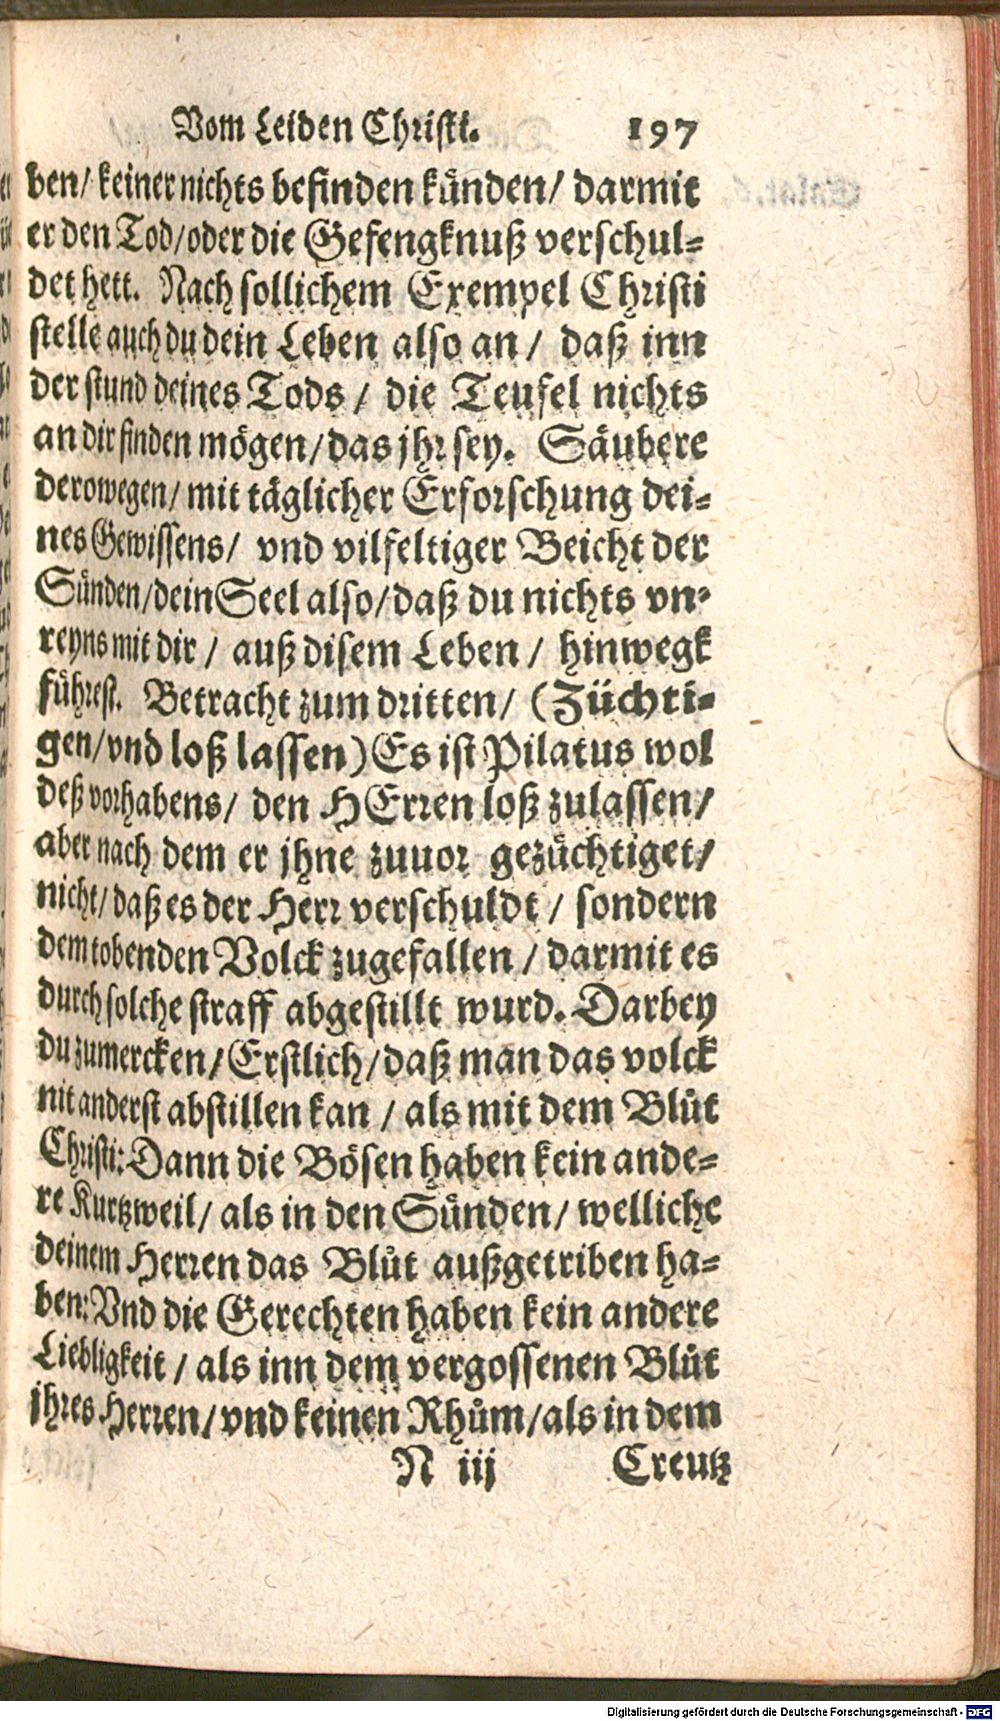 Vom Leiden Christi. 197
ben/ keiner nichts befinden künden/ darmit
er den Tod/oder die Gefengknuß verschul-
det hett. Nach sollichem Exempel Christi
stelle auch du dein Leben also an / daß inn
der stund deines Tods / die Teufel nichts
an dir finden mögen/das jhr sey. Säubere
derowegen/ mit täglicher Erforschung dei-
nes Gewissens/ vnd vilfeltiger Beicht der
Sünden/dein Seel also/daß du nichts vn-
reyns mit dir / auß disem Leben / hinwegk
führest. Betracht zum dritten/ (Züchti-
gen/vnd loß lassen) Es ist Pilatus wol
deß vorhabens/ den HErren loß zulassen/
aber nach dem er jhne zuuor gezüchtiget/
nicht/ daß es der Herr verschuldt / sondern
dem tobenden Volck zugefallen / darmit es
durch solche straff abgestillt wurd. Darbey
du zumercken/ Erstlich/daß man das volck
nit anderst abstillen kan / als mit dem Blůt
Christi: Dann die Bösen haben kein ande-
re Kurtzweil/ als in den Sünden/ welliche
deinem Herren das Blůt außgetriben ha-
ben: Vnd die Gerechten haben kein andere
Liebligkeit / als inn dem vergossenen Blůt
jhres Herren/ vnd keinen Rhům/als in dem
N iij Creutz
Digitalisierung gefördert durch die Deutsche Forschungsgemeinschaft - DFG